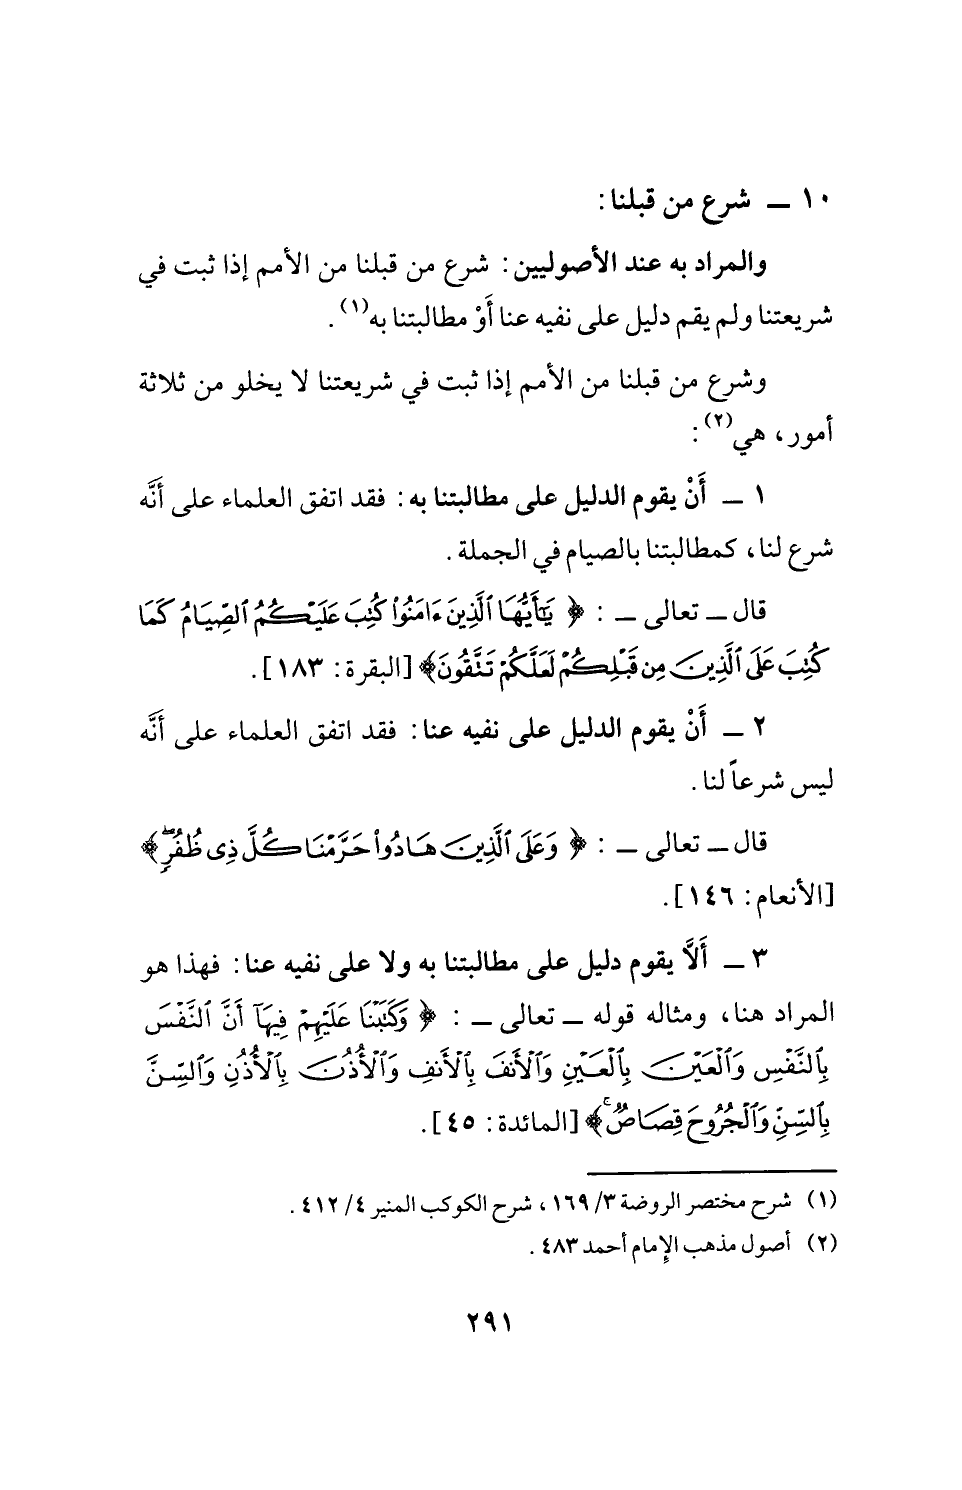 ١٠ ــ شرع من قبلنا:
والمراد به عند الأصوليين: شرع من قبلنا من الأمم إذا ثبت في
شريعتنا ولم يقم دليل على نفيه عنا أَوْ مطالبتنا به(١).
وشرع من قبلنا من الأمم إذا ثبت في شريعتنا لا يخلو من ثلاثة
أمور، هي(٢):
١ ــ أَنْ يقوم الدليل على مطالبتنا به: فقد اتفق العلماء على أَنَّه
شرع لنا، كمطالبتنا بالصيام في الجملة.
قال ــ تعالى ــ : ﴿ يَٰٓأَيُّهَا ٱلَّذِينَ ءَامَنُوا۟ كُتِبَ عَلَيْكُمُ ٱلصِّيَامُ كَمَا
كُتِبَ عَلَى ٱلَّذِينَ مِن قَبْلِكُمْ لَعَلَّكُمْ تَتَّقُونَ﴾ [البقرة: ١٨٣].
٢ ــ أَنْ يقوم الدليل على نفيه عنا: فقد اتفق العلماء على أَنَّه
ليس شرعاً لنا.
قال ــ تعالى ــ : ﴿ وَعَلَى ٱلَّذِينَ هَادُوا۟ حَرَّمْنَا كُلَّ ذِى ظُفُرٍۖ﴾
[الأنعام: ١٤٦].
٣ ــ أَلاَّ يقوم دليل على مطالبتنا به ولا على نفيه عنا: فهذا هو
المراد هنا، ومثاله قوله ــ تعالى ــ : ﴿ وَكَتَبْنَا عَلَيْهِمْ فِيهَآ أَنَّ ٱلنَّفْسَ
بِٱلنَّفْسِ وَٱلْعَيْنَ بِٱلْعَيْنِ وَٱلْأَنفَ بِٱلْأَنفِ وَٱلْأُذُنَ بِٱلْأُذُنِ وَٱلسِّنَّ
بِٱلسِّنِّ وَٱلْجُرُوحَ قِصَاصٌۚ﴾ [المائدة: ٤٥].
(١) شرح مختصر الروضة ٣/ ١٦٩، شرح الكوكب المنير ٤/ ٤١٢.
(٢) أصول مذهب الإمام أحمد ٤٨٣.
٢٩١